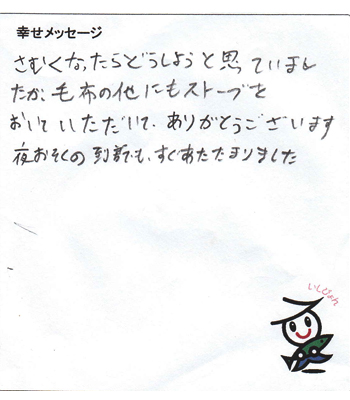 幸せメッセージ
さむくなったらどうしようと思っていまし
たが、毛布の他にもストーブを
おいていただいて、ありがとうございます
夜おそくの到着でも、すぐあたたまりました
いしぴょん